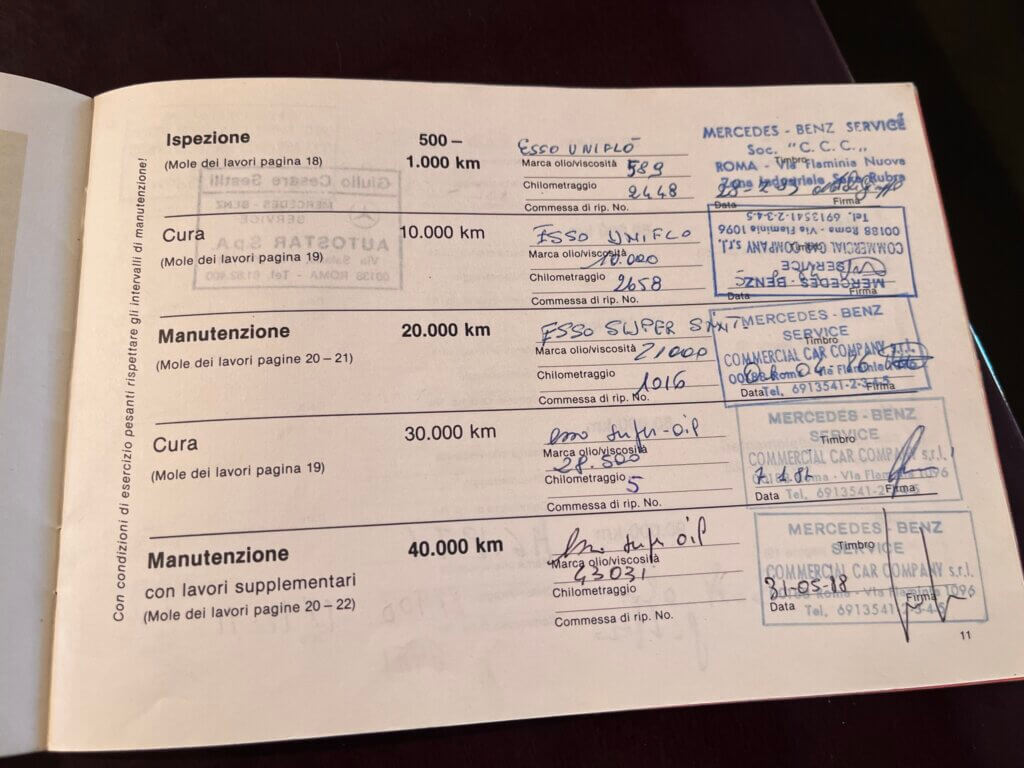 Con condizioni di esercizio pesanti rispettare gli intervalli di manutenzione!
Ispezione 500 –
(Mole dei lavori pagina 18) 1.000 km
ESSO UNIFLO
Marca olio/viscosità
589
Chilometraggio
2448
Commessa di rip. No.
MERCEDES - BENZ SERVICE
Soc. "C. C. C.„
Timbro
ROMA - Via Flaminia Nuova
Zona Industriale Saxa Rubra
Data Firma
Cura 10.000 km
(Mole dei lavori pagina 19)
ESSO UNIFLO
Marca olio/viscosità
10.000
Chilometraggio
2658
Commessa di rip. No.
MERCEDES - BENZ
SERVICE
COMMERCIAL CAR COMPANY s.r.l.
00188 Roma - Via Flaminia 1096
Tel. 6913541-2-3-4-5
Data Firma
Manutenzione 20.000 km
(Mole dei lavori pagine 20 – 21)
ESSO SUPER SINT.
Marca olio/viscosità
21000
Chilometraggio
1016
Commessa di rip. No.
MERCEDES - BENZ
SERVICE
Timbro
COMMERCIAL CAR COMPANY s.r.l.
00188 Roma - Via Flaminia 1096
Data Firma
Tel, 6913541-2-3-4-5
Cura 30.000 km
(Mole dei lavori pagina 19)
esso super-oil
Marca olio/viscosità
28.500
Chilometraggio
5
Commessa di rip. No.
MERCEDES - BENZ
SERVICE
Timbro
COMMERCIAL CAR COMPANY s.r.l.
00188 Roma - Via Flaminia 1096
Data Firma
Tel, 6913541-2-3-4-5
Manutenzione 40.000 km
con lavori supplementari
(Mole dei lavori pagine 20 – 22)
esso super oil
Marca olio/viscosità
43031
Chilometraggio
Commessa di rip. No.
MERCEDES - BENZ
Timbro
SERVICE
COMMERCIAL CAR COMPANY s.r.l.
31-05-88
00188 Roma - Via Flaminia 1096
Data Firma
Tel, 6913541-2-3-4-5
11